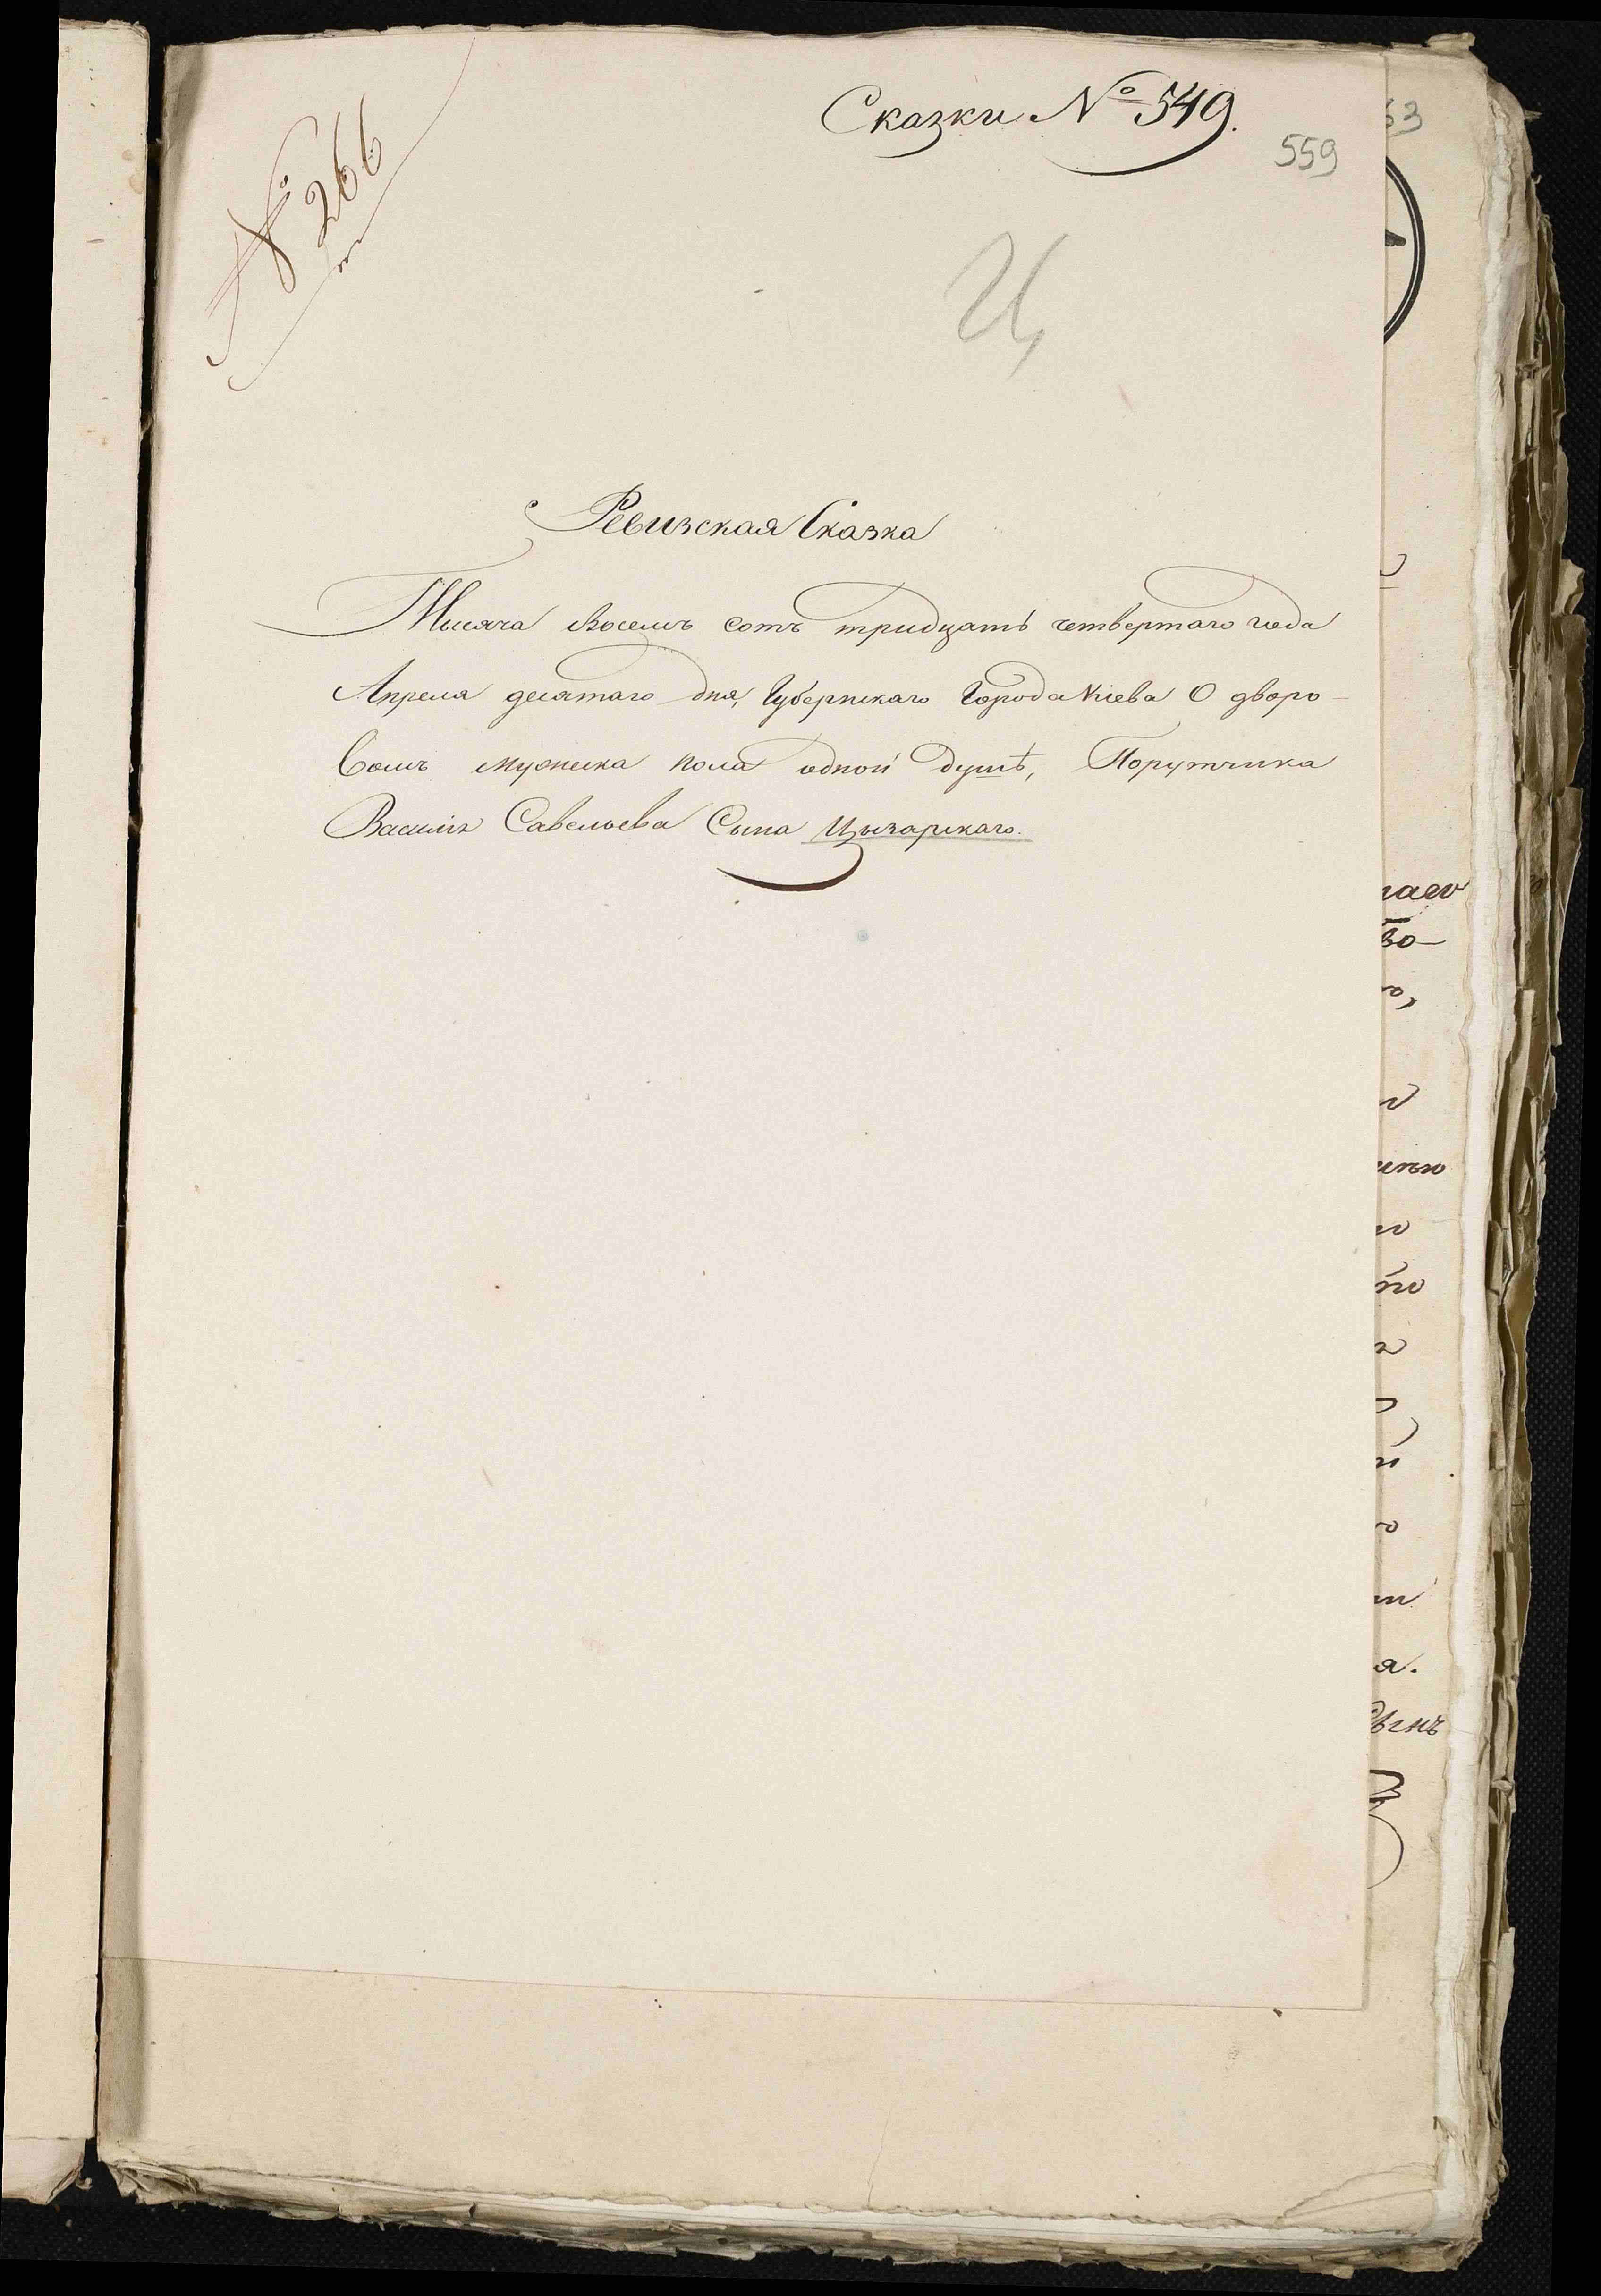 Сказки № 549.
559
№ 266
Ц
Ревизская Сказка
Тысяча восемь сотъ тридцать четвертаго года
Апреля десятаго дня, Губернскаго Города Кіева О дворо-
вомъ мужеска пола одной душѣ, Порутчика
Василія Савельева Сына Цызарскаго.
63
во-
я.
сынъ